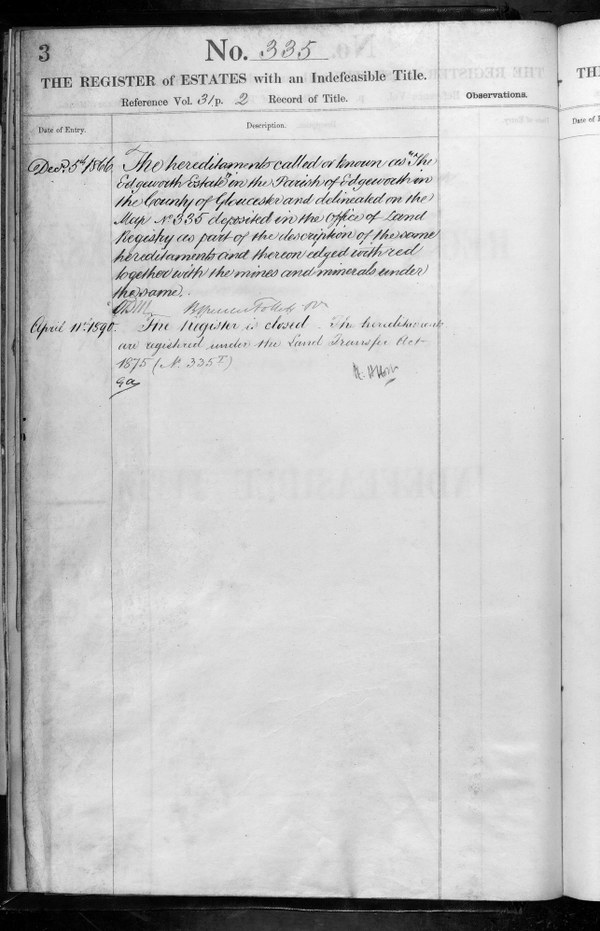 3
No. 335
THE REGISTER of ESTATES with an Indefeasible Title.
Reference Vol. 31 p. 2 Record of Title.
Observations.
Date of Entry.
Description.
Decr. 5th 1866
The hereditaments called or known as "The
Edgeworth Estate" in the Parish of Edgeworth in
the County of Gloucester and delineated on the
Map No 335 deposited in the Office of Land
Registry as part of the description of the same
hereditaments and thereon edged with red
together with the mines and minerals under
the same.
April 11th 1890.
The register is closed. The hereditaments
are registered under the Land Transfer Act
1875 (No. 335T)
TH
Date of E